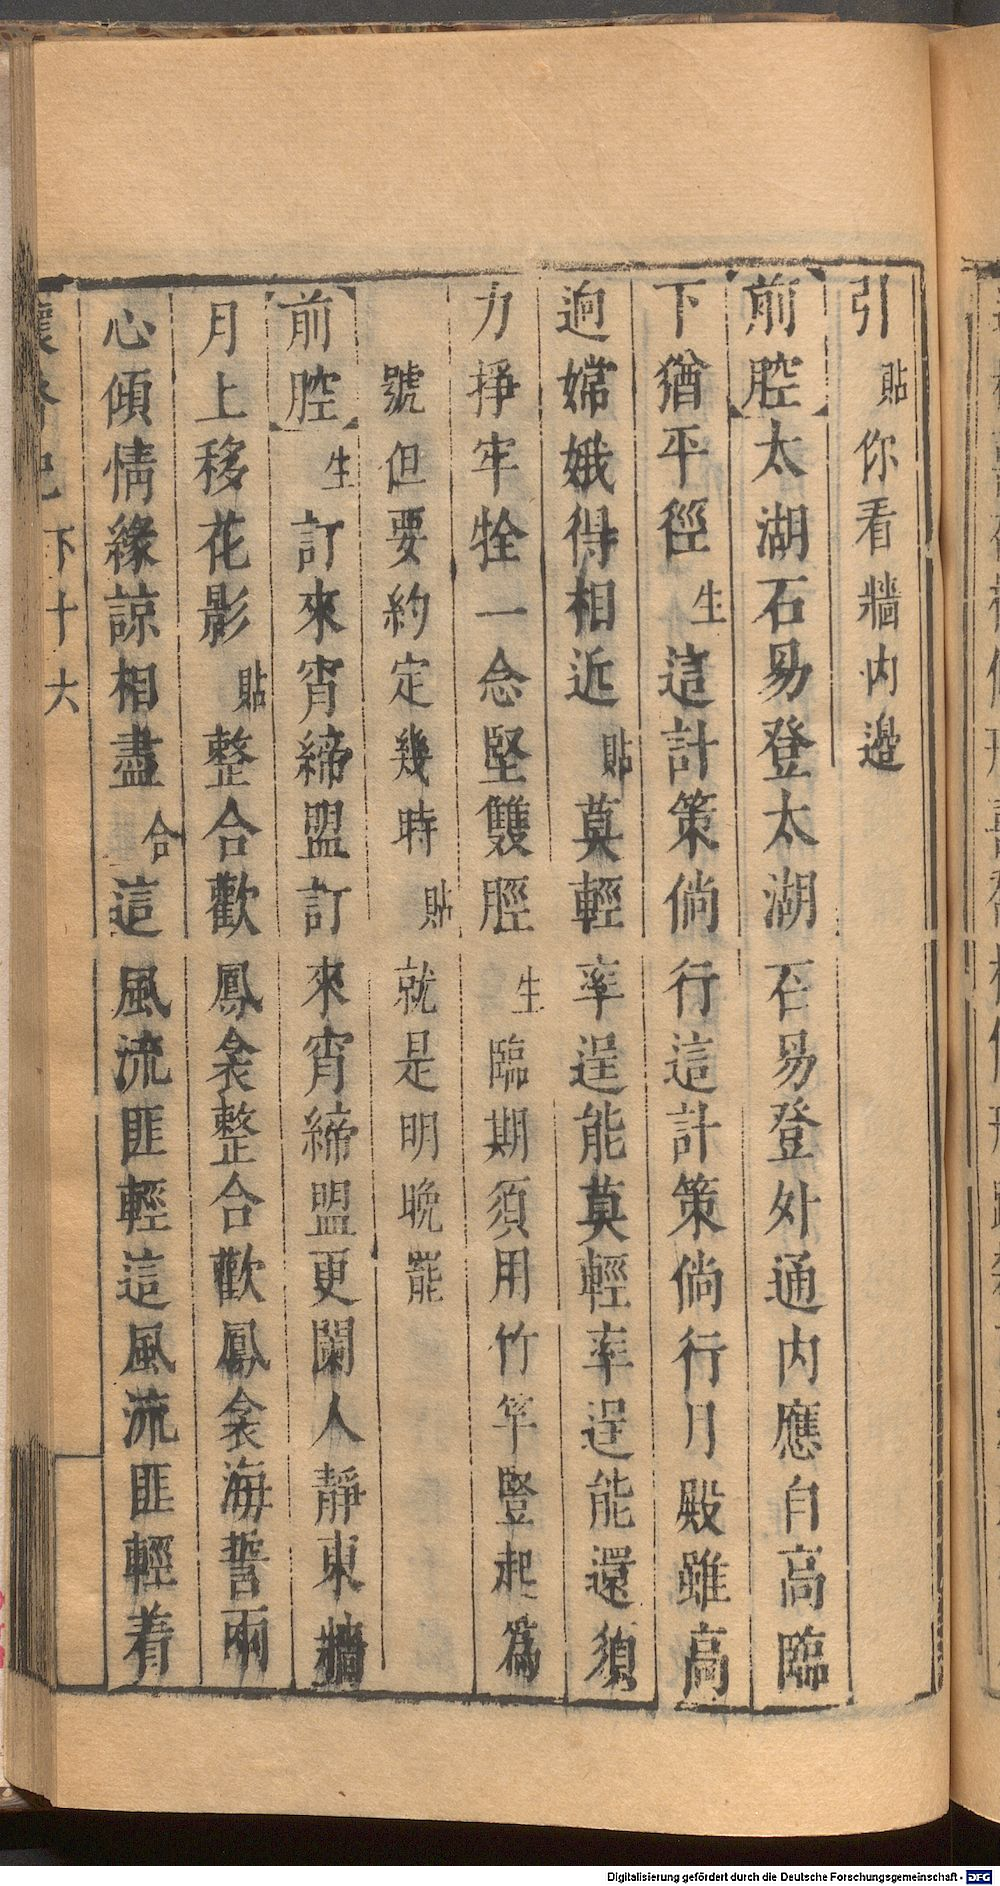 引 貼 你看牆内邉
前腔 太湖石易登太湖石易登外通内應自高臨
下猶平徑 生 這計策倘行這計策倘行月殿雖高
逈嫦娥得相近 貼 莫輕率逞能莫輕率逞能還須
力掙牢牷一念堅雙脛 生 臨期須用竹竿豎起爲
號但要約定幾時 貼 就是明晩罷
前腔 生 訂來宵締盟訂來宵締盟更闌人靜東牆
月上移花影 貼 整合歡鳳衾整合歡鳳衾海誓兩
心傾情緣諒相盡 合 這風流匪輕這風流匪輕着
下十六
Digitalisierung gefördert durch die Deutsche Forschungsgemeinschaft - DFG